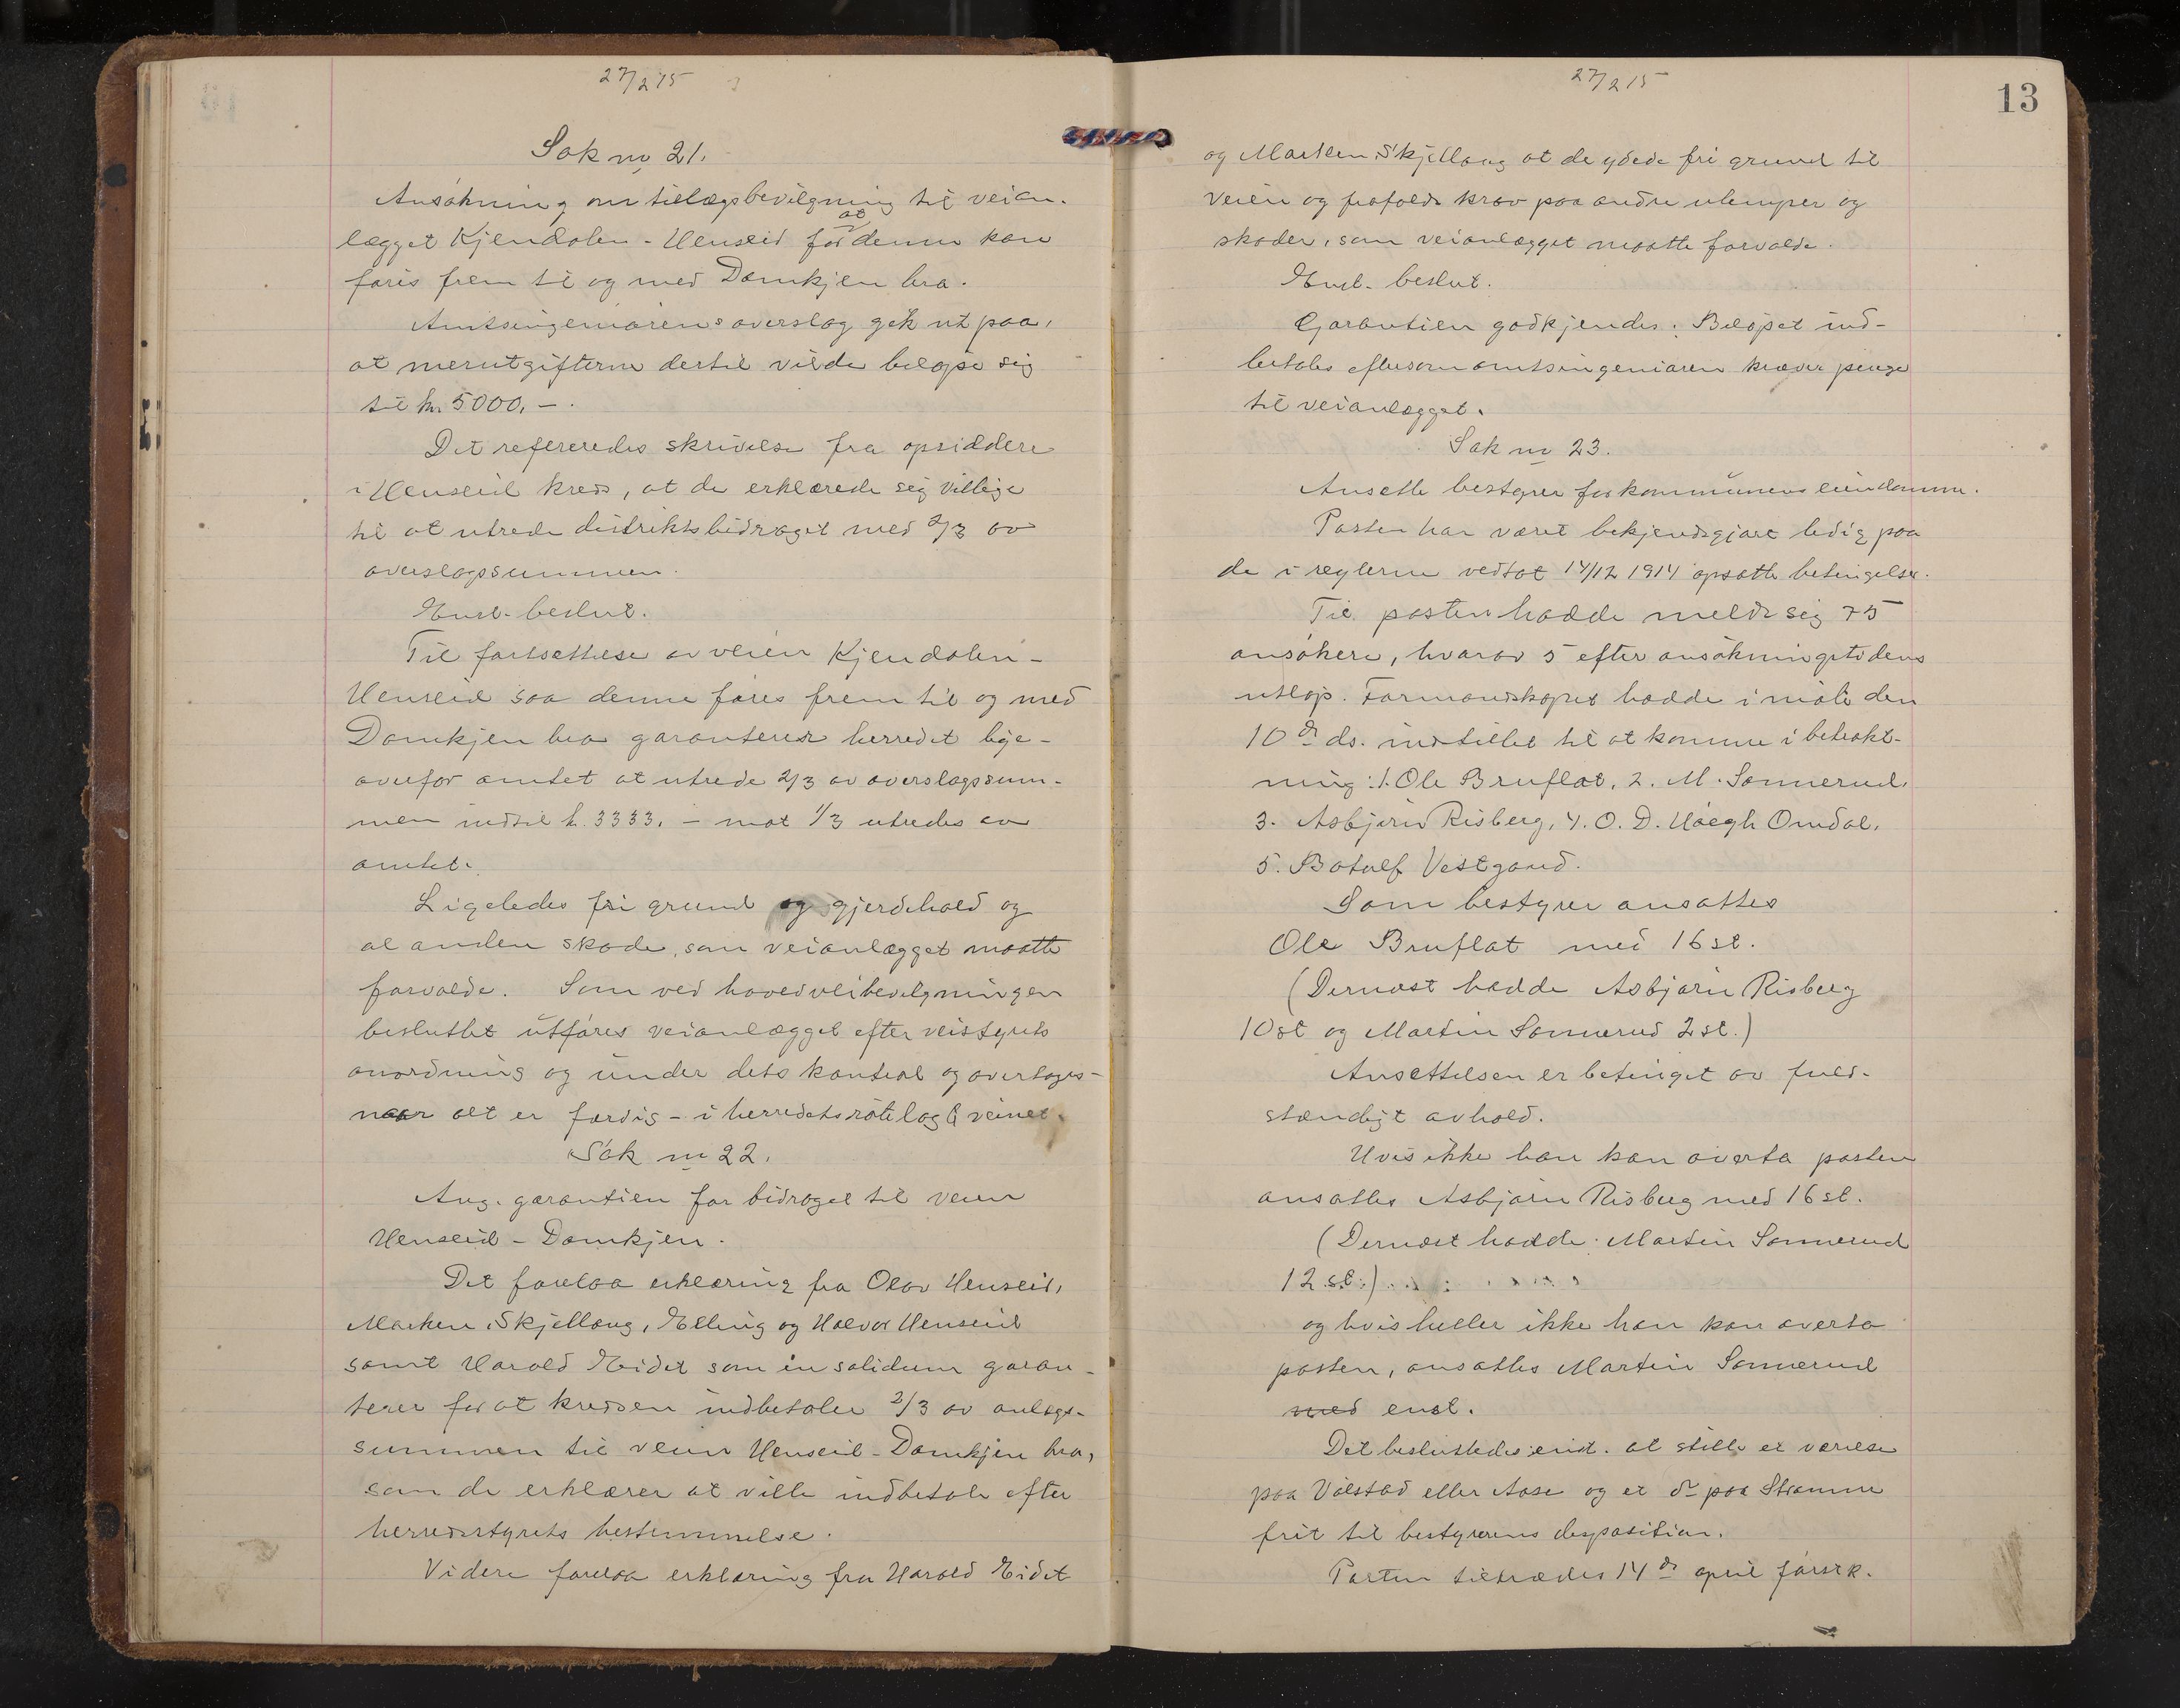 27/2 15
Sak no 21.
Ansökning om tillægsbevilgning til veian-
lægget Kjendalen - Henseid for at denne kan
føres frem til og med Damkjen bra.
Amtsingeniørens overslag gik ut paa,
at merutgifterne dertil vilde beløpe sig
til kr 5000,-.
Det refereredes skrivelse fra opsiddere
i Henseid kreds, at de erklærede sig villige
til at utrede distriktsbidraget med 2/3 av
overslagssummen.
Enst. beslut.
Til fortsættelse av veien Kjendalen -
Henseid saa denne føres frem til og med
Damkjen bra garanterer herredet lige-
overfor amtet at utrede 2/3 av overslagssum-
men indtil k. 3333,- mot 1/3 utredes av
amtet.
Ligeledes fri grund og gjerdehold og
al anden skade, som veianlægget maatte
forvolde. Som ved hovedveibevilgningen
besluttet utføres veianlægget efter veistyrets
anordning og under dets kontrol og overtages -
naar alt er færdig - i herredets rotelagte veinet.
Sak no 22.
Ang. garantien for bidraget til veien
Henseid - Damkjen.
Det forelaa erklæring fra Olav Henseid,
Marken Skjellaug, Elling og Halvor Henseid
samt Harald Eidet som in solidum garan-
terer for at kredsen indbetaler 2/3 av anlægs-
summen til veien Henseid - Damkjen bra,
som de erklærer at ville indbetale efter
herredsstyrets bestemmelse.
Videre forelaa erklæring fra Harald Eidet
27/2 15
13
og Marken Skjellaug at de ydede fri grund til
veien og frafaldt krav paa andre ulemper og
skader, som veianlægget maatte forvolde.
Enst. beslut.
Garantien godkjendes. Beløpet ind-
betales eftersom amtsingeniøren kræver penge
til veianlægget.
Sak no 23.
Ansætte bestyrer for kommunens eiendomme.
Posten har været bekjendtgjort ledig paa
de i reglerne vedtat 14/12 1914 opsatte betingelser.
Til posten hadde meldt sig 75
ansökere, hvorav 5 efter ansökningstidens
utløp. Formandskapet hadde i møte den
10de ds. indstillet til at komme i betrakt-
ning: 1. Ole Bruflat, 2. M. Sønnerud,
3. Asbjørn Risberg, 4. O. D. Höegh Omdal,
5. Botolf Vestgard.
Som bestyrer ansattes
Ole Bruflat med 16 st.
(Dernæst hadde Asbjørn Risberg
10 st og Martin Sønnerud 2 st.)
Ansættelsen er betinget av fuld-
stændigt avhold.
Hvis ikke han kan overta posten
ansattes Asbjørn Risberg med 16 st.
(Dernæst hadde Martin Sønnerud
12 st.)
og hvis heller ikke han kan overta
posten, ansattes Martin Sønnerud
med enst.
Det besluttedes enst. at stille et værelse
paa Völstad eller Aase og et do paa Strømme
frit til bestyrerens disposition.
Posten tiltrædes 14de april førstk.